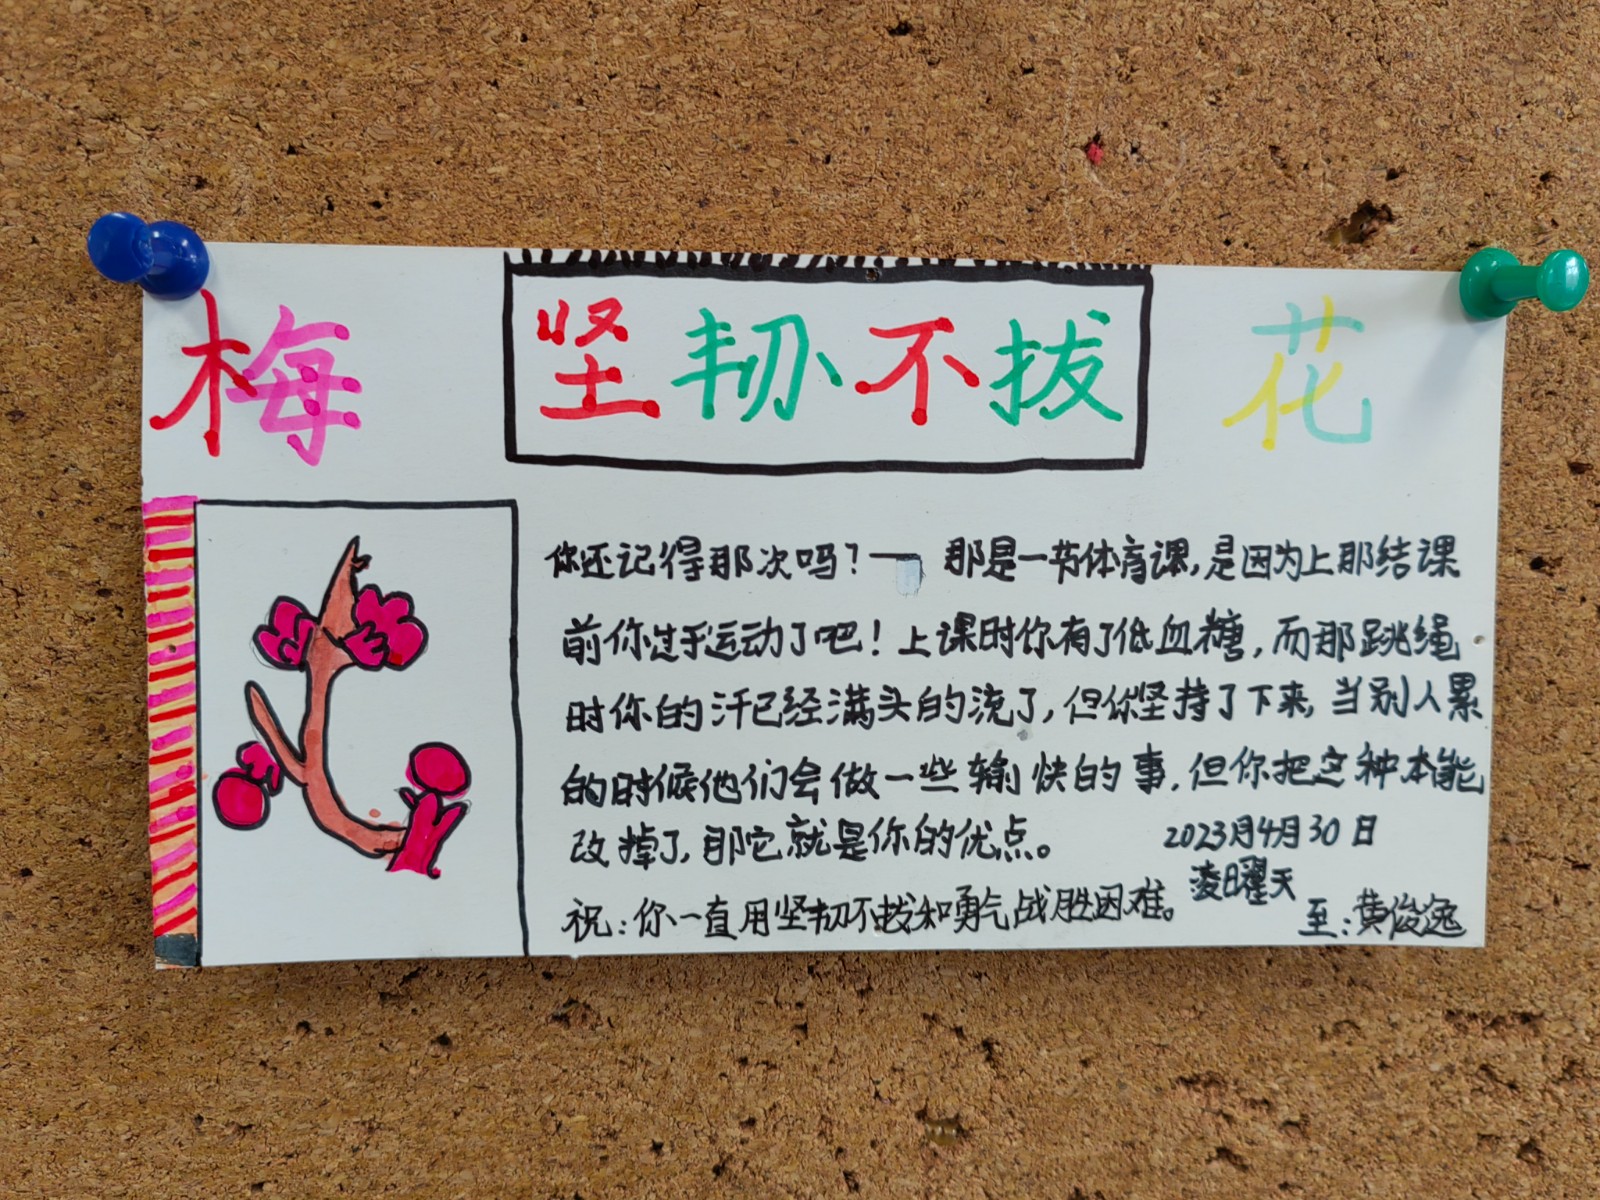 梅 坚韧不拔 花
你还记得那次吗？一 那是一节体育课，是因为上那结课
前你过于运动了吧！上课时你有了低血糖，而那跳绳
时你的汗已经满头的流了，但你坚持了下来，当别人累
的时候他们会做一些输快的事，但你把这种本能
改掉了，那它就是你的优点。
2023月4月30日
凌曜天
祝：你一直用坚韧不拔和勇气战胜困难。
至：黄俊逸